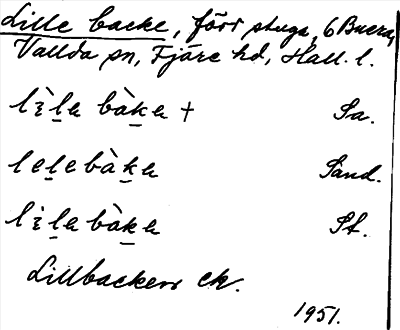 Lille backe, förr stuga, 6 Buera,
Vallda sn, Fjäre hd, Hall. l.
lìla bàka + Sa.
lelebàka Sand.
lìlabàka St.
Lillbacken ek.
1951.